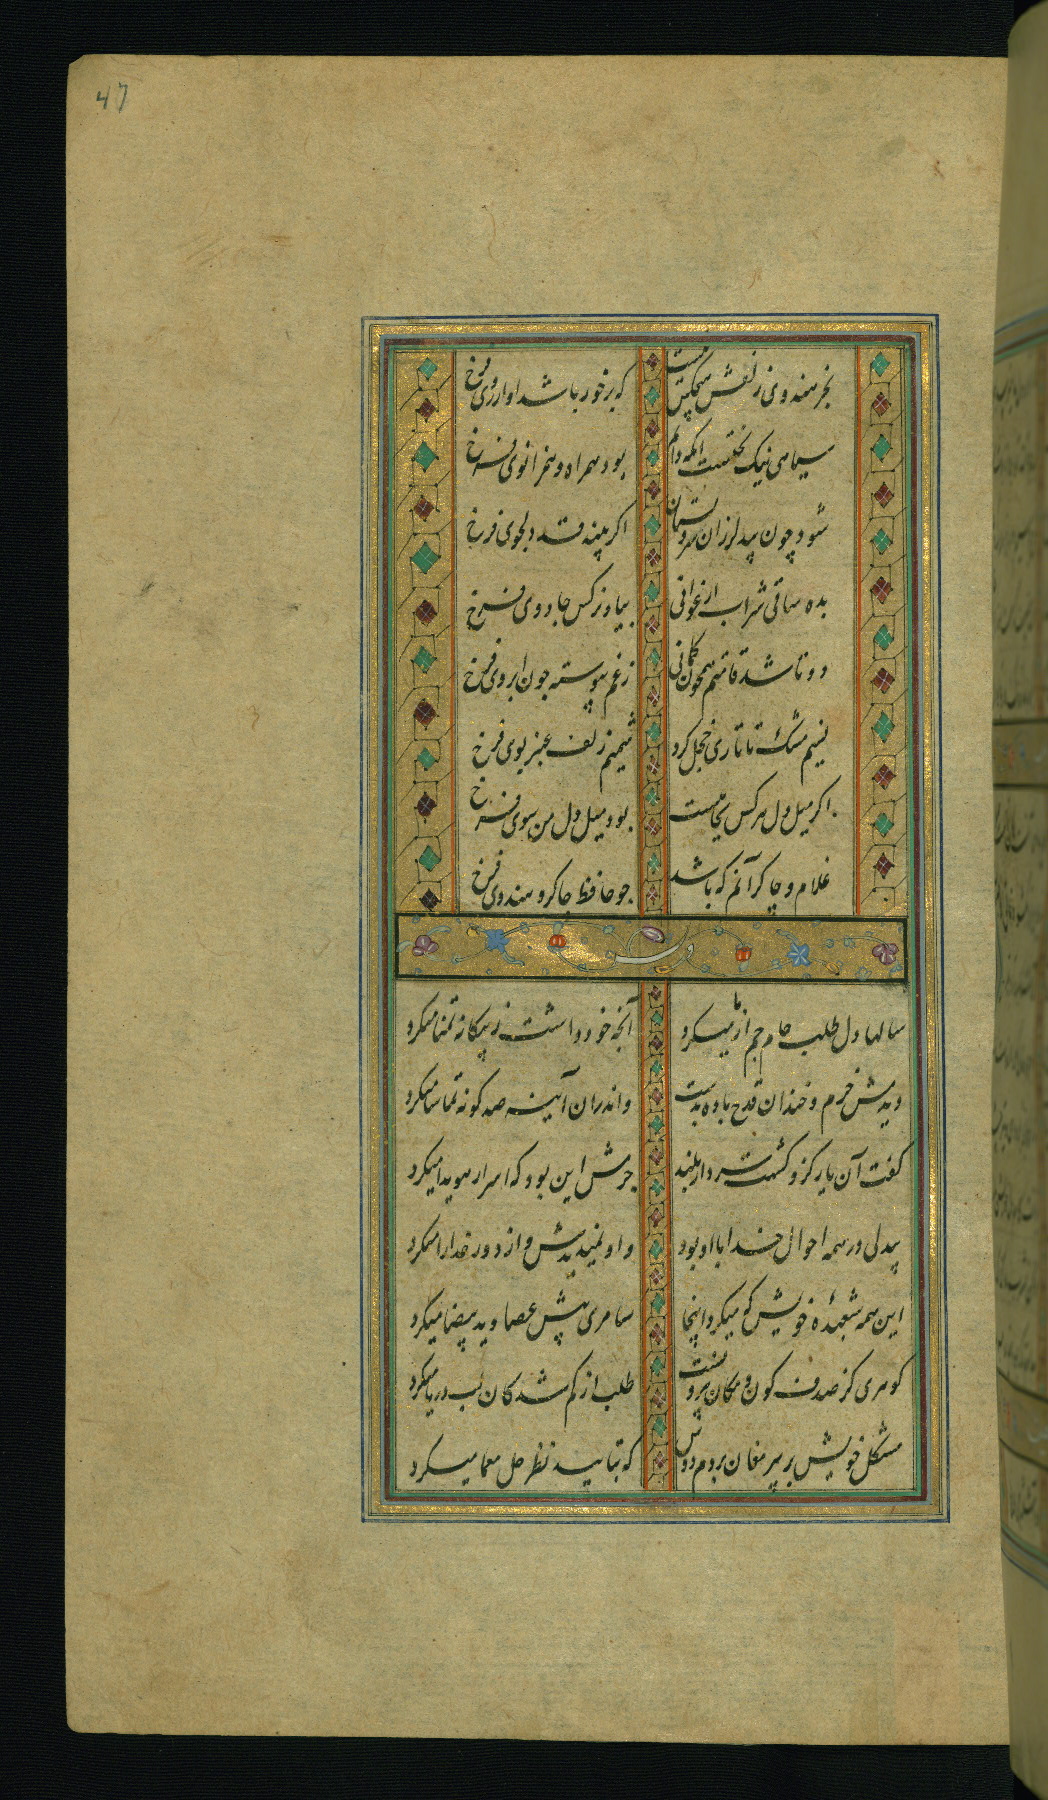 47
بجز هندوی زلفش هیچکس نیست که برخوردار باشد از روی فرخ
سیاهی نیک بختست آنکه دایم بود همراه و همزانوی فرخ
شود چون بید لرزان سرو بستان اگر بیند قد دلجوی فرخ
بده ساقی شراب ارغوانی بیاد نرکس جادوی فرخ
دوتا شد قامتم همچون کمانی زغم پیوسته چون ابروی فرخ
نسیم مشک تاتاری خجل کرد شمیم زلف عنبر بوی فرخ
اکر میل دل هرکس بجائیست بود میل دل من سوی فرخ
غلام و چاکر آنم که باشد چو حافظ چاکر و هندوی فرخ
وله
سالها دل طلب جام جم از ما میکرد آنچه خود داشت ز بیکانه تمنا میکرد
دیدمش خرم و خندان قدح باده بدست واندران آینه صد کونه تماشا میکرد
کفت آن یار کزو کشت سر دار بلند جرمش این بود که اسرار هویدا میکرد
بیدلی در همه احوال خدا با او بود و او نمیدیدش و از دور خدارا میکرد
این همه شعبدهٔ خویش که میکرد اینجا سامری پیش عصا و ید بیضا میکرد
کوهری کز صدف کون و مکان بیرونست طلب از کم شدکان لب دریا میکرد
مشکل خویش بر پیر مغان بردم دوش که بتایید نظر حل معما میکرد